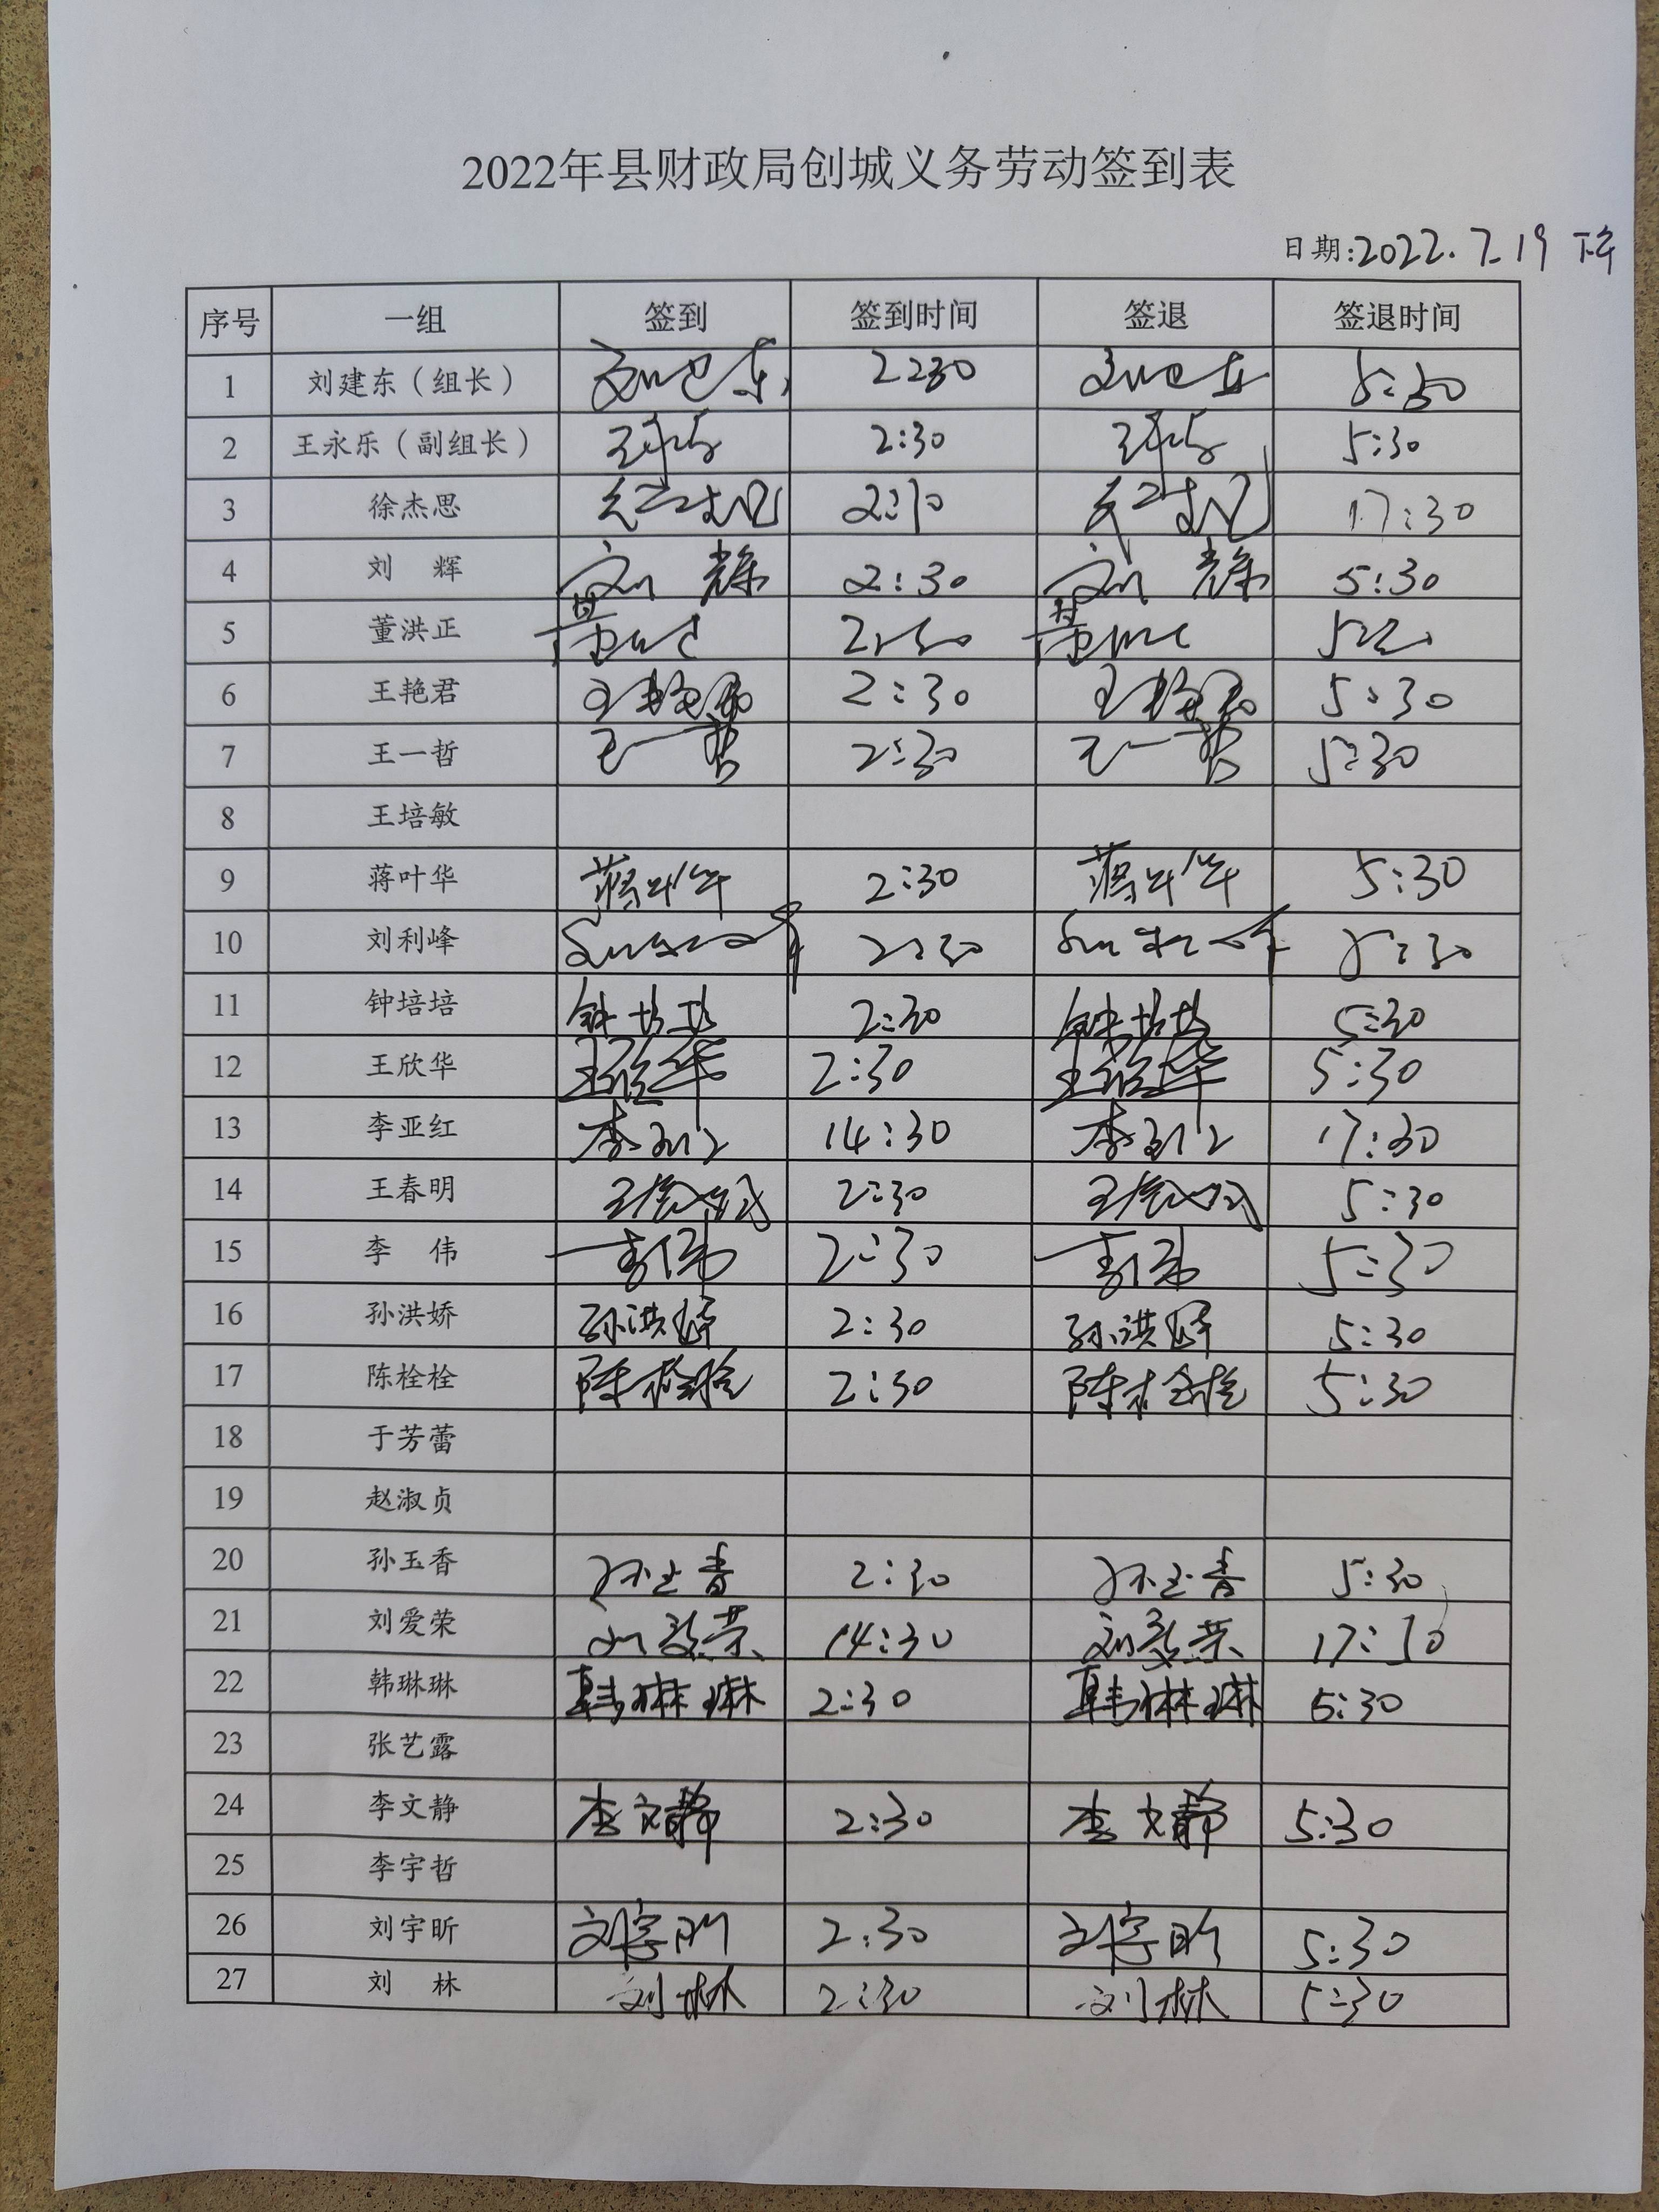 2022年县财政局创城义务劳动签到表
日期:2022.7.19 下午
序号 一组 签到 签到时间 签退 签退时间
1 刘建东（组长） 刘建东 2:30 刘建东 5:30
2 王永乐（副组长） 王永乐 2:30 王永乐 5:30
3 徐杰思 2:10 17:30
4 刘 辉 刘 辉 2:30 刘 辉 5:30
5 董洪正 董洪正 2:30 董洪正
6 王艳君 王艳君 2:30 王艳君 5:30
7 王一哲 王一哲 2:30 王一哲 5:30
8 王培敏
9 蒋叶华 蒋叶华 2:30 蒋叶华 5:30
10 刘利峰 刘利峰 2:30 刘利峰 5:30
11 钟培培 钟培培 2:30 钟培培 5:30
12 王欣华 王欣华 2:30 王欣华 5:30
13 李亚红 李亚红 14:30 李亚红 17:30
14 王春明 王春明 2:30 王春明 5:30
15 李 伟 李伟 2:30 李伟 5:30
16 孙洪娇 孙洪娇 2:30 孙洪娇 5:30
17 陈栓栓 陈栓栓 2:30 陈栓栓 5:30
18 于芳蕾
19 赵淑贞
20 孙玉香 孙玉香 2:30 孙玉香 5:30
21 刘爱荣 刘爱荣 14:30 刘爱荣 17:30
22 韩琳琳 韩琳琳 2:30 韩琳琳 5:30
23 张艺露
24 李文静 李文静 2:30 李文静 5:30
25 李宇哲
26 刘宇昕 刘宇昕 2:30 刘宇昕 5:30
27 刘 林 刘林 2:30 刘林 5:30